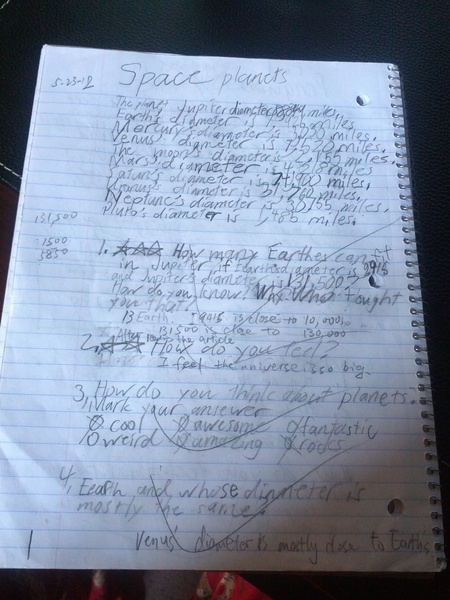 5-23-12
Space planets
The planet Jupiter diameter miles.
Earth's diameter is miles.
Mercury's diameter is miles.
Venus' diameter is 7,520 miles.
The diameter is 2,155 miles.
Mars' diameter is miles.
Saturn's diameter is miles.
Uranus's diameter is miles.
Neptune's diameter is miles.
Pluto's diameter is 1,485 miles.
131,500
1500
5850
1. How many Earthes can fit
in Jupiter if Earth's diameter is 7915
and Jupiter's diameter is 131,500?
How do you know? What tought
you that?
13 Earth. 7915 is close to 10,000,
131,500 is cloe to 130,000
After the article
2. How do you feel?
I feel the universe is so big.
3. How do you think about planets.
Mark your answer
0 cool 0 awesome 0 fantastic
0 weird 0 amazing 0 rocks
4. Eearh and whose diameter is
mostly the same.
1 Venus' diameter is mostly close to Earth's